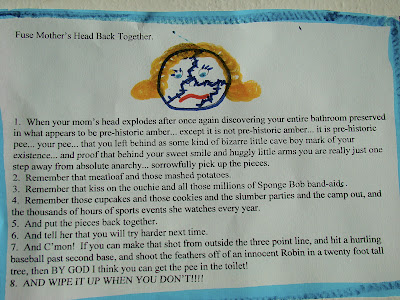 Fuse Mother's Head Back Together.
1. When your mom's head explodes after once again discovering your entire bathroom preserved
in what appears to be pre-historic amber... except it is not pre-historic amber... it is pre-historic
pee... your pee... that you left behind as some kind of bizarre little cave boy mark of your
existence... and proof that behind your sweet smile and huggly little arms you are really just one
step away from absolute anarchy... sorrowfully pick up the pieces.
2. Remember that meatloaf and those mashed potatoes.
3. Remember that kiss on the ouchie and all those millions of Sponge Bob band-aids.
4. Remember those cupcakes and those cookies and the slumber parties and the camp out, and
the thousands of hours of sports events she watches every year.
5. And put the pieces back together.
6. And tell her that you will try harder next time.
7. And C'mon! If you can make that shot from outside the three point line, and hit a hurtling
baseball past second base, and shoot the feathers off of an innocent Robin in a twenty foot tall
tree, then BY GOD I think you can get the pee in the toilet!
8. AND WIPE IT UP WHEN YOU DON'T!!!!